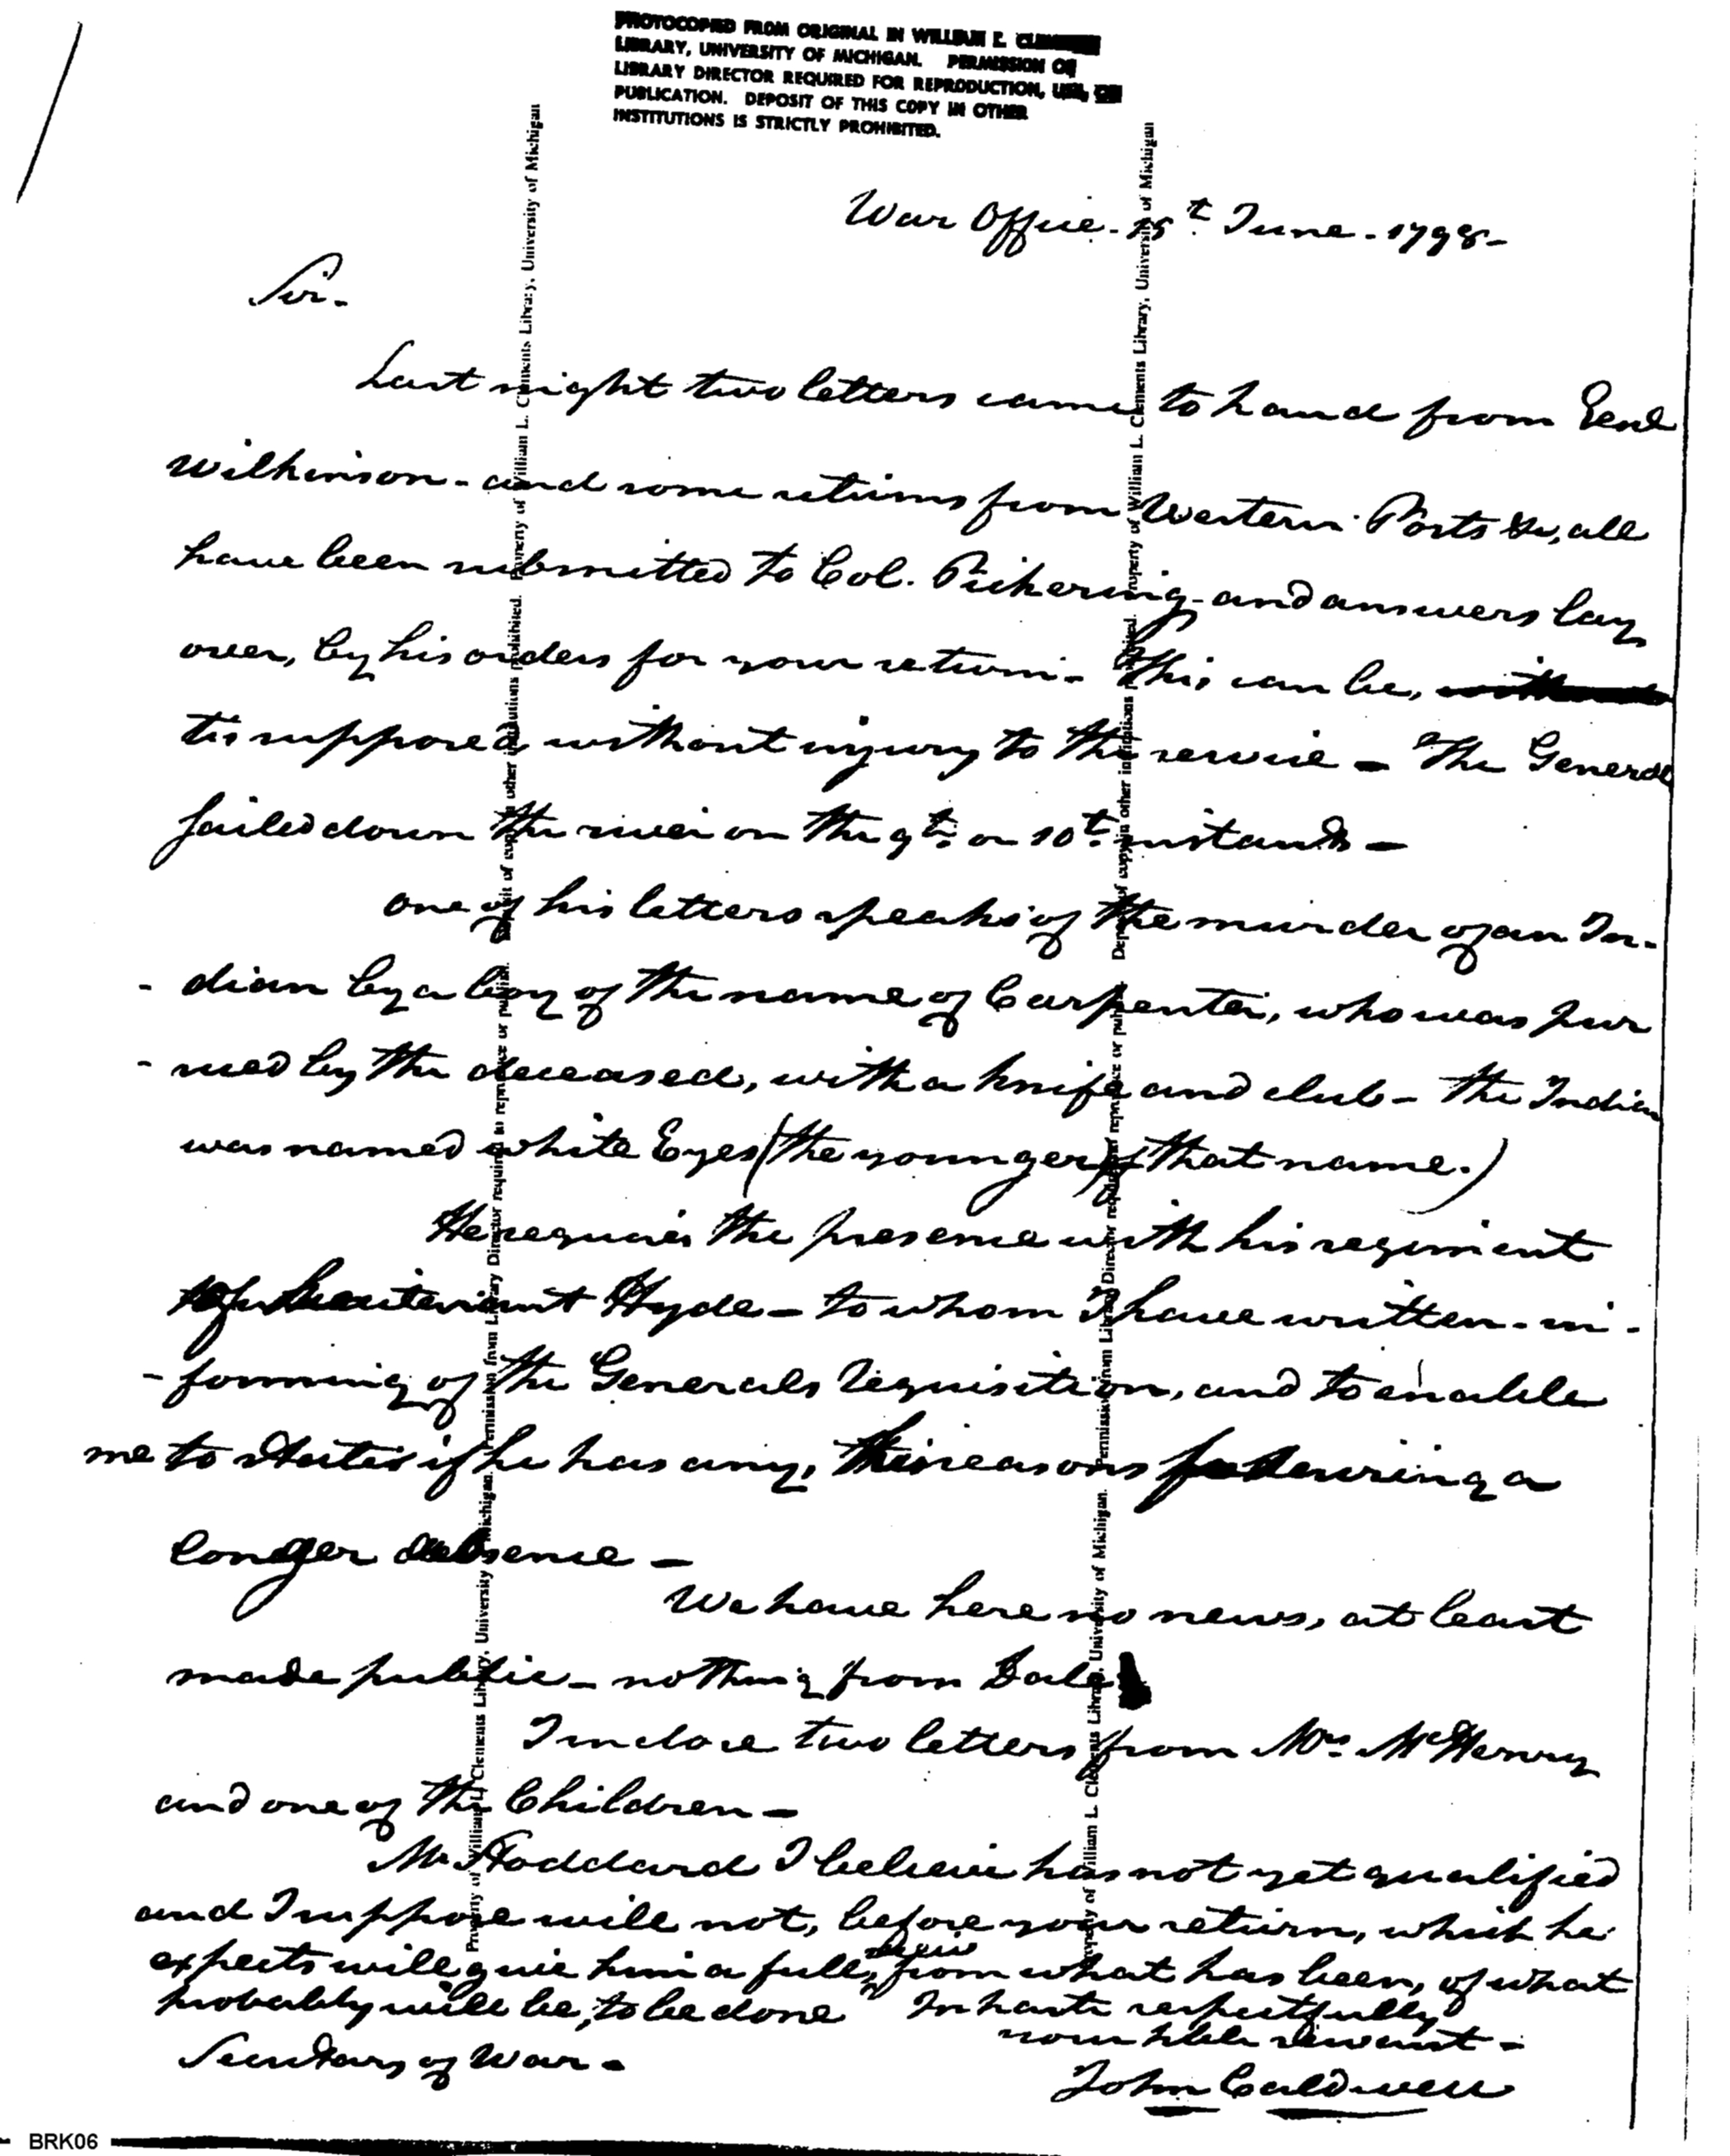 PHOTOCOPIED FROM ORIGINAL IN WILLIAM L. CLEMENTS
LIBRARY, UNIVERSITY OF MICHIGAN. PERMISSION OF
LIBRARY DIRECTOR REQUIRED FOR REPRODUCTION, USE, OR
PUBLICATION. DEPOSIT OF THIS COPY IN OTHER
INSTITUTIONS IS STRICTLY PROHIBITED.
War Office. 15t June. 1798-
Sir.
Last night two letters came to hand from Genl
Wilkinson - and some returns from Western Posts &c, all
have been submitted to Col. Pickering - and answers lay
over, by his orders for your return. This can be,
tis supposed without injury to the service - The General
sailed down the river on the 9th. or 10t. instant -
One of his letters speaks of the murder of an In-
- dian by a boy of the name of Carpenter, who was pur
- sued by the deceased, with a knife and club - the Indian
was named white Eyes (the younger of that name.)
He requires the presence with his regiment
of Lieutenant Hyde - to whom I have written - in-
- forming of the Generals requisition, and to enable
me to state if he has any, his reasons for desiring a
longer absence -
We have here no news, at least
made public - nothing from Dale
I inclose two letters from Mrs. McHenry
and one of the Children -
Mr Stoddard I believe has not yet qualified
and I suppose will not, before your return, which he
expects will give him a full view from what has been, of what
probably will be, to be done In haste respectfully
your hble servant -
Secretary of War -
John Caldwell
Property of William L. Clements Library, University of Michigan. Permission from Library Director required to reproduce or publish. Deposit of copy in other institutions prohibited. Property of William L. Clements Library, University of Michigan
Property of William L. Clements Library, University of Michigan. Permission from Library Director required to reproduce or publish. Deposit of copy in other institutions prohibited. Property of William L. Clements Library, University of Michigan
BRK06